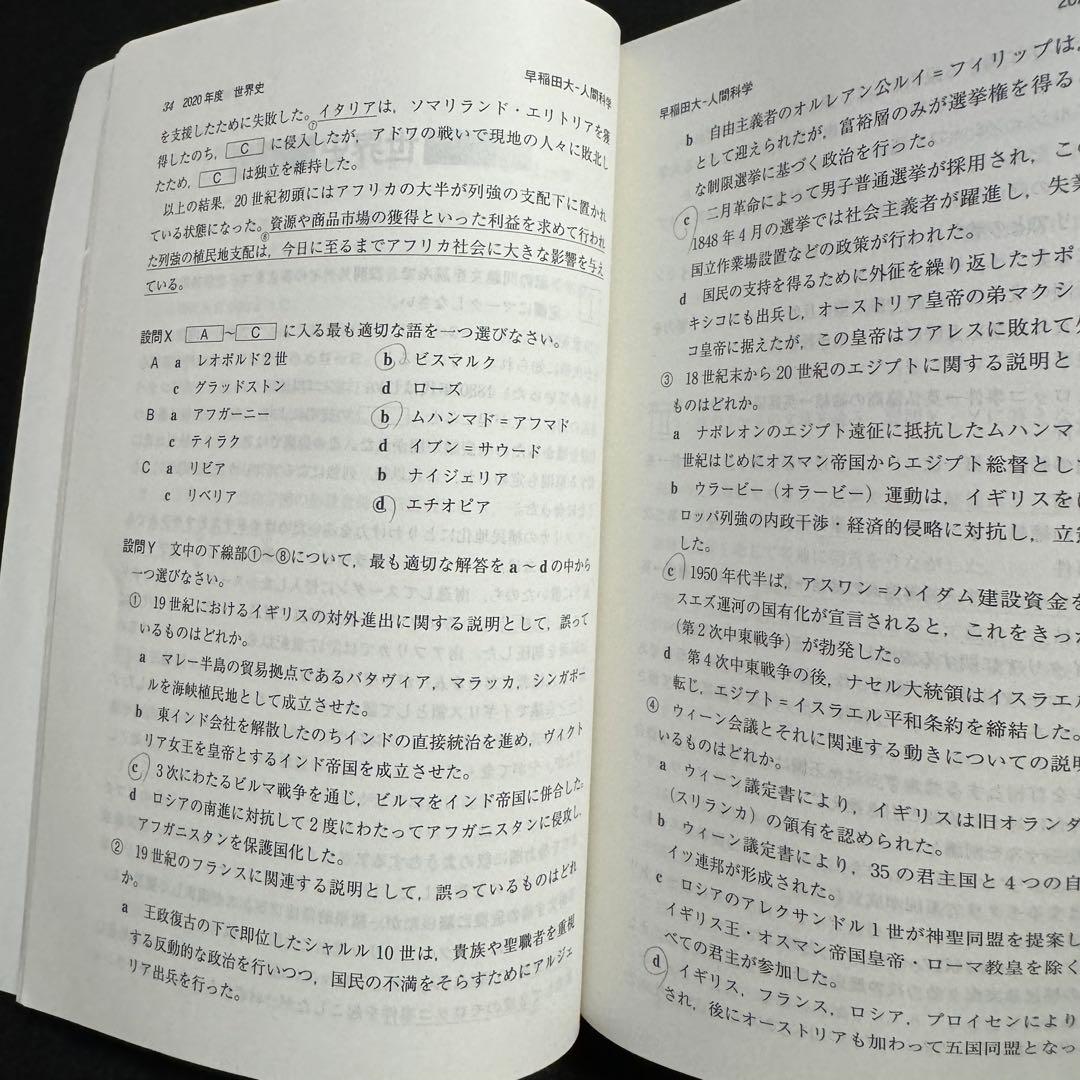 34 2020年度 世界史
早稲田大-人間科学
を支援したために失敗した。イタリアは，ソマリランド・エリトリアを獲
得したのち，C に侵入したが，アドワの戦いで現地の人々に敗北し
⑦
たため，C は独立を維持した。
以上の結果，20世紀初頭にはアフリカの大半が列強の支配下に置かれ
ている状態になった。資源や商品市場の獲得といった利益を求めて行われ
⑧
た列強の植民地支配は，今日に至るまでアフリカ社会に大きな影響を与え
ている。
設問X A～C に入る最も適切な語を一つ選びなさい。
A a レオポルド2世 b ビスマルク
c グラッドストン d ローズ
B a アフガーニー b ムハンマド＝アフマド
c ティラク d イブン＝サウード
C a リビア b ナイジェリア
c リベリア d エチオピア
設問Y 文中の下線部①～⑧について，最も適切な解答をa～dの中から
一つ選びなさい。
① 19世紀におけるイギリスの対外進出に関する説明として，誤って
いるものはどれか。
a マレー半島の貿易拠点であるバタヴィア，マラッカ，シンガポー
ルを海峡植民地として成立させた。
b 東インド会社を解散したのちインドの直接統治を進め，ヴィクト
リア女王を皇帝とするインド帝国を成立させた。
c 3次にわたるビルマ戦争を通じ，ビルマをインド帝国に併合した。
d ロシアの南進に対抗して2度にわたってアフガニスタンに侵攻し，
アフガニスタンを保護国化した。
② 19世紀のフランスに関連する説明として，誤っているものはどれ
か。
a 王政復古の下で即位したシャルル10世は，貴族や聖職者を重視
する反動的な政治を行いつつ，国民の不満をそらすためにアルジェ
リア出兵を行った。
早稲田大-人間科学
202
b 自由主義者のオルレアン公ルイ＝フィリップは，
として迎えられたが，富裕層のみが選挙権を得る
な制限選挙に基づく政治を行った。
c 二月革命によって男子普通選挙が採用され，この
1848年4月の選挙では社会主義者が躍進し，失業
国立作業場設置などの政策が行われた。
d 国民の支持を得るために外征を繰り返したナポ
キシコにも出兵し，オーストリア皇帝の弟マクシ
コ皇帝に据えたが，この皇帝はフアレスに敗れて
③ 18世紀末から20世紀のエジプトに関する説明と
ものはどれか。
a ナポレオンのエジプト遠征に抵抗したムハンマ
世紀はじめにオスマン帝国からエジプト総督とし
b ウラービー（オラービー）運動は，イギリスを
ロッパ列強の内政干渉・経済的侵略に対抗し，立
した。
c 1950年代半ば，アスワン＝ハイダム建設資金を
スエズ運河の国有化が宣言されると，これをきっ
（第2次中東戦争）が勃発した。
d 第4次中東戦争の後，ナセル大統領はイスラエル
転じ，エジプト＝イスラエル平和条約を締結した。
④ ウィーン会議とそれに関連する動きについての説明
いるものはどれか。
a ウィーン議定書により，イギリスは旧オランダ
（スリランカ）の領有を認められた。
b ウィーン議定書により，35の君主国と4つの自
イツ連邦が形成された。
c ロシアのアレクサンドル1世が神聖同盟を提案し
イギリス王・オスマン帝国皇帝・ローマ教皇を除く
べての君主が参加した。
d イギリス，フランス，ロシア，プロイセンにより
され，後にオーストリアも加わって五国同盟となっ